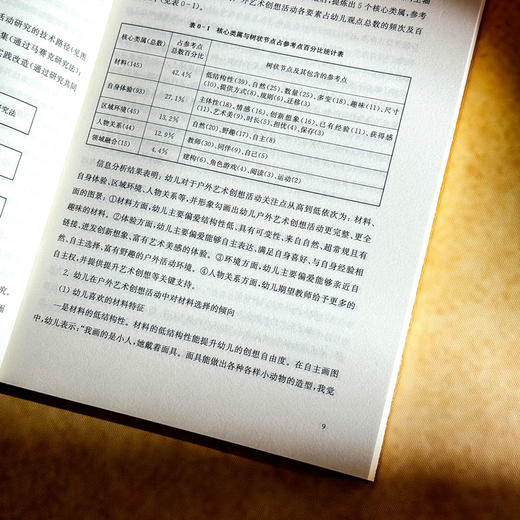 活动研究的技术路径(见图
集(通过马赛克研究法)、
实践改造(通过研究共同
究法
究。
后,提炼出5个核心类属,参考
外艺术创想活动各要素占幼儿观点总数的频次及百
(见表0-1)。
表0-1 核心类属与树状节点占参考点百分比统计表
核心类属(总数) 占参考点总数百分比 树状节点及其包含的参考点
材料(145) 42.4% 低结构性(39)、自然(25)、数量(25)、多变(18)、趣味(11)、尺寸(10)、提供方式(8)、规则(6)、迁移(3)
自身体验(93) 27.1% 主体性(18)、情感(16)、创新想象(16)、已有经验(11)、获得感(11)、艺术美(9)、时长(5)、担忧(4)、保存(3)
区域环境(45) 13.2% 自然(20)、野趣(17)、自主(8)
人物关系(44) 12.9% 教师(30)、同伴(9)、自己(5)
领域融合(15) 4.4% 建构(6)、角色游戏(4)、阅读(3)、运动(2)
信息分析结果表明:幼儿对于户外艺术创想活动关注点从高到低依次为:材料、
自身体验、区域环境、人物关系等,并形象勾画出幼儿户外艺术创想活动更完整、更全
面的图景:①材料方面,幼儿主要偏爱结构性低、具有可变性、来自自然、超常规且有
趣味的材料。②体验方面,幼儿主要偏爱能够自主表达、满足自身喜好、与自身经验相
链接、迸发创新想象、富有艺术美感的体验。③环境方面,幼儿主要偏爱能够亲近自
然、自主选择、富有野趣的户外活动环境。④人物关系方面,幼儿期望教师给予更多的
自主权,并提供提升艺术创想等关键支持。
2. 幼儿在户外艺术创想活动中对材料选择的倾向
(1) 幼儿喜欢的材料特征
一是材料的低结构性。材料的低结构性能提升幼儿的创想自由度。在自主画图
中,幼儿表示:“我画的是小人,她戴着面具。面具能做出各种各样小动物的造型,我觉
9